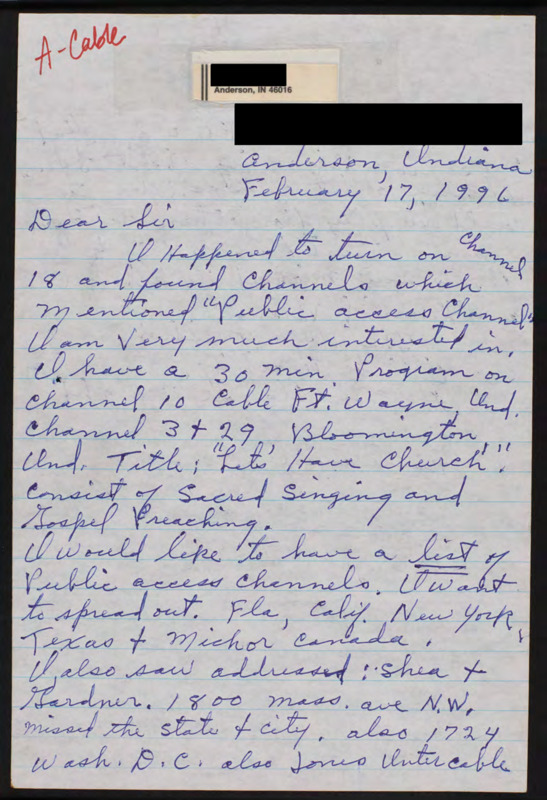 A-Cable
Anderson, IN 46016
Anderson, Indiana
February 17, 1996
Dear Sir
I Happened to turn on Channel
18 and found Channels which
mentioned "Public access Channel"
I am Very much interested in.
I have a 30 min Program on
Channel 10 Cable Ft. Wayne, Ind.
Channel 3 + 29, Bloomington,
Ind. Title; "Let's Have Church".
Consist of Sacred Singing and
Gospel Preaching.
I would like to have a list of
Public access Channels. I want
to spread out. Fla, Calif. New York,
Texas + Mich or Canada.
I also saw addressed: Shea +
Gardner. 1800 Mass. ave N.W.
missed the state + city. also 1724
Wash. D.C. also Jones Intercable